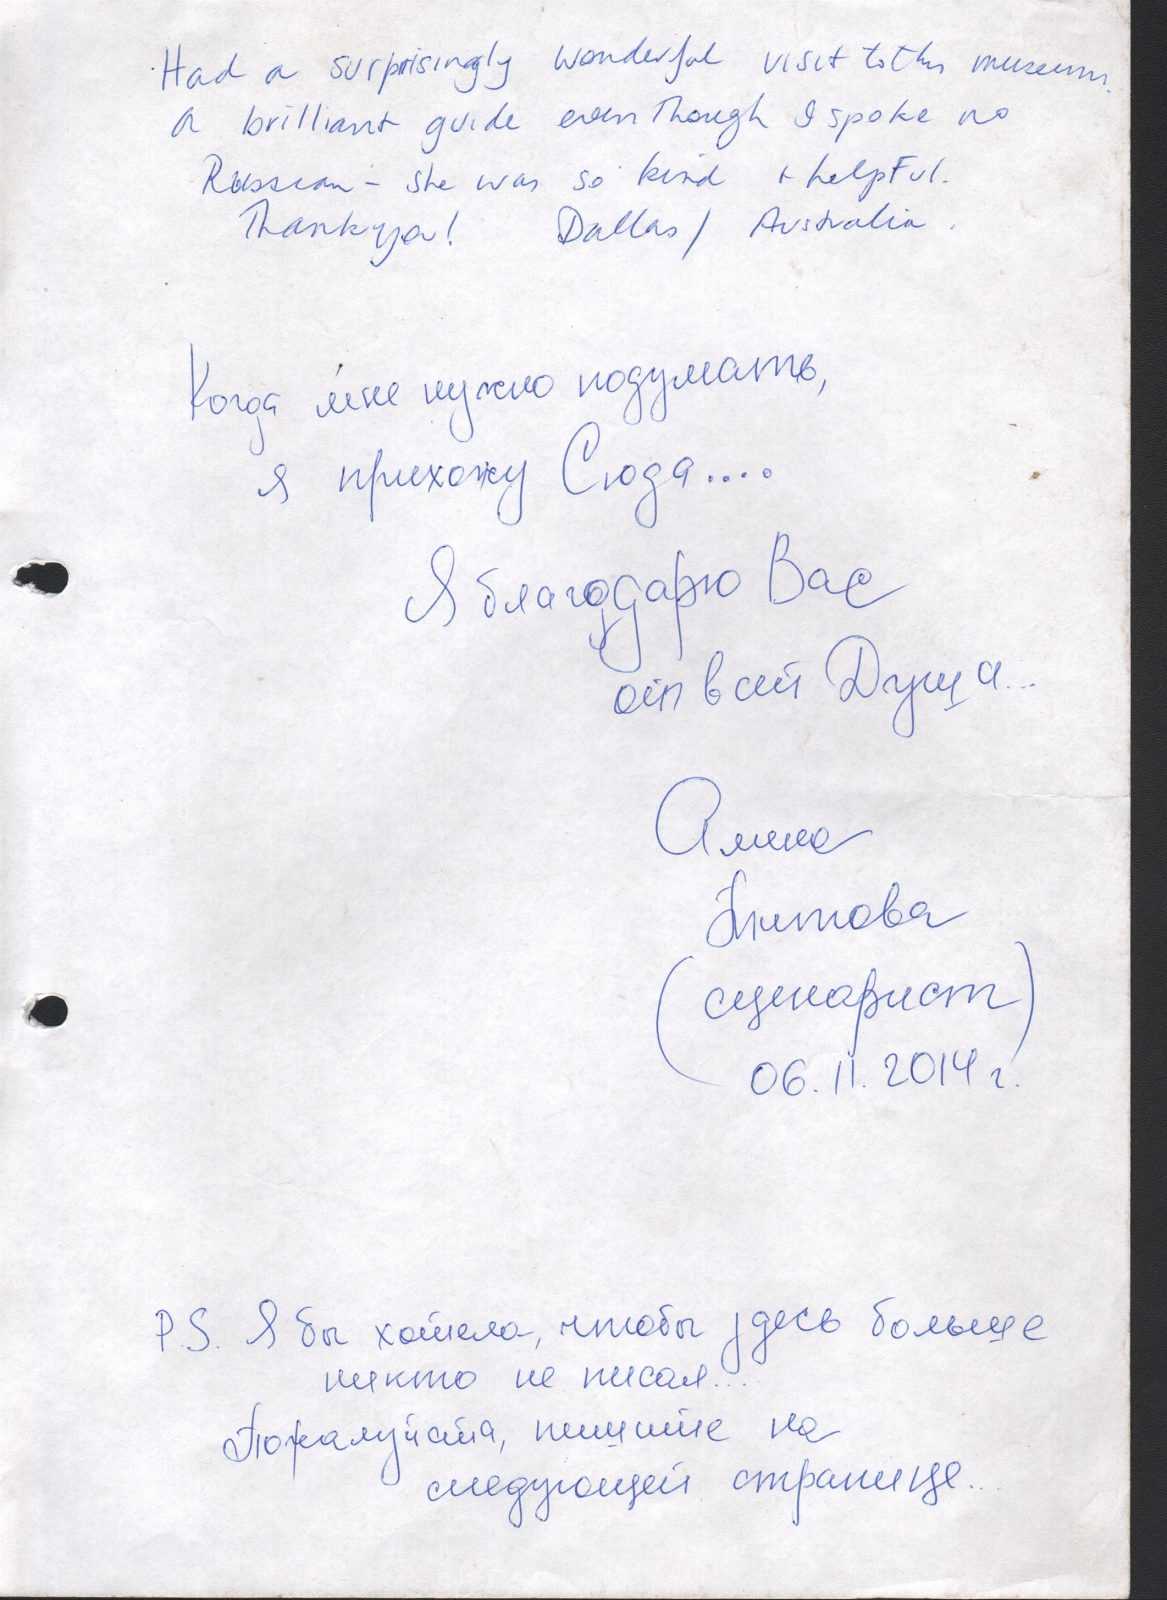 Had a surprisingly wonderful visit to this museum.
A brilliant guide even though I spoke no
Russian - she was so kind + helpful.
Thankyou! Dallas / Australia.
Когда мне нужно подумать,
я прихожу Сюда....
Я благодарю Вас
от всей Душа...
(сценарист)
06.11.2014 г.
P.S. Я бы хотела, чтобы здесь больше
никто не писал...
Пожалуйста, пишите на
следующей странице...